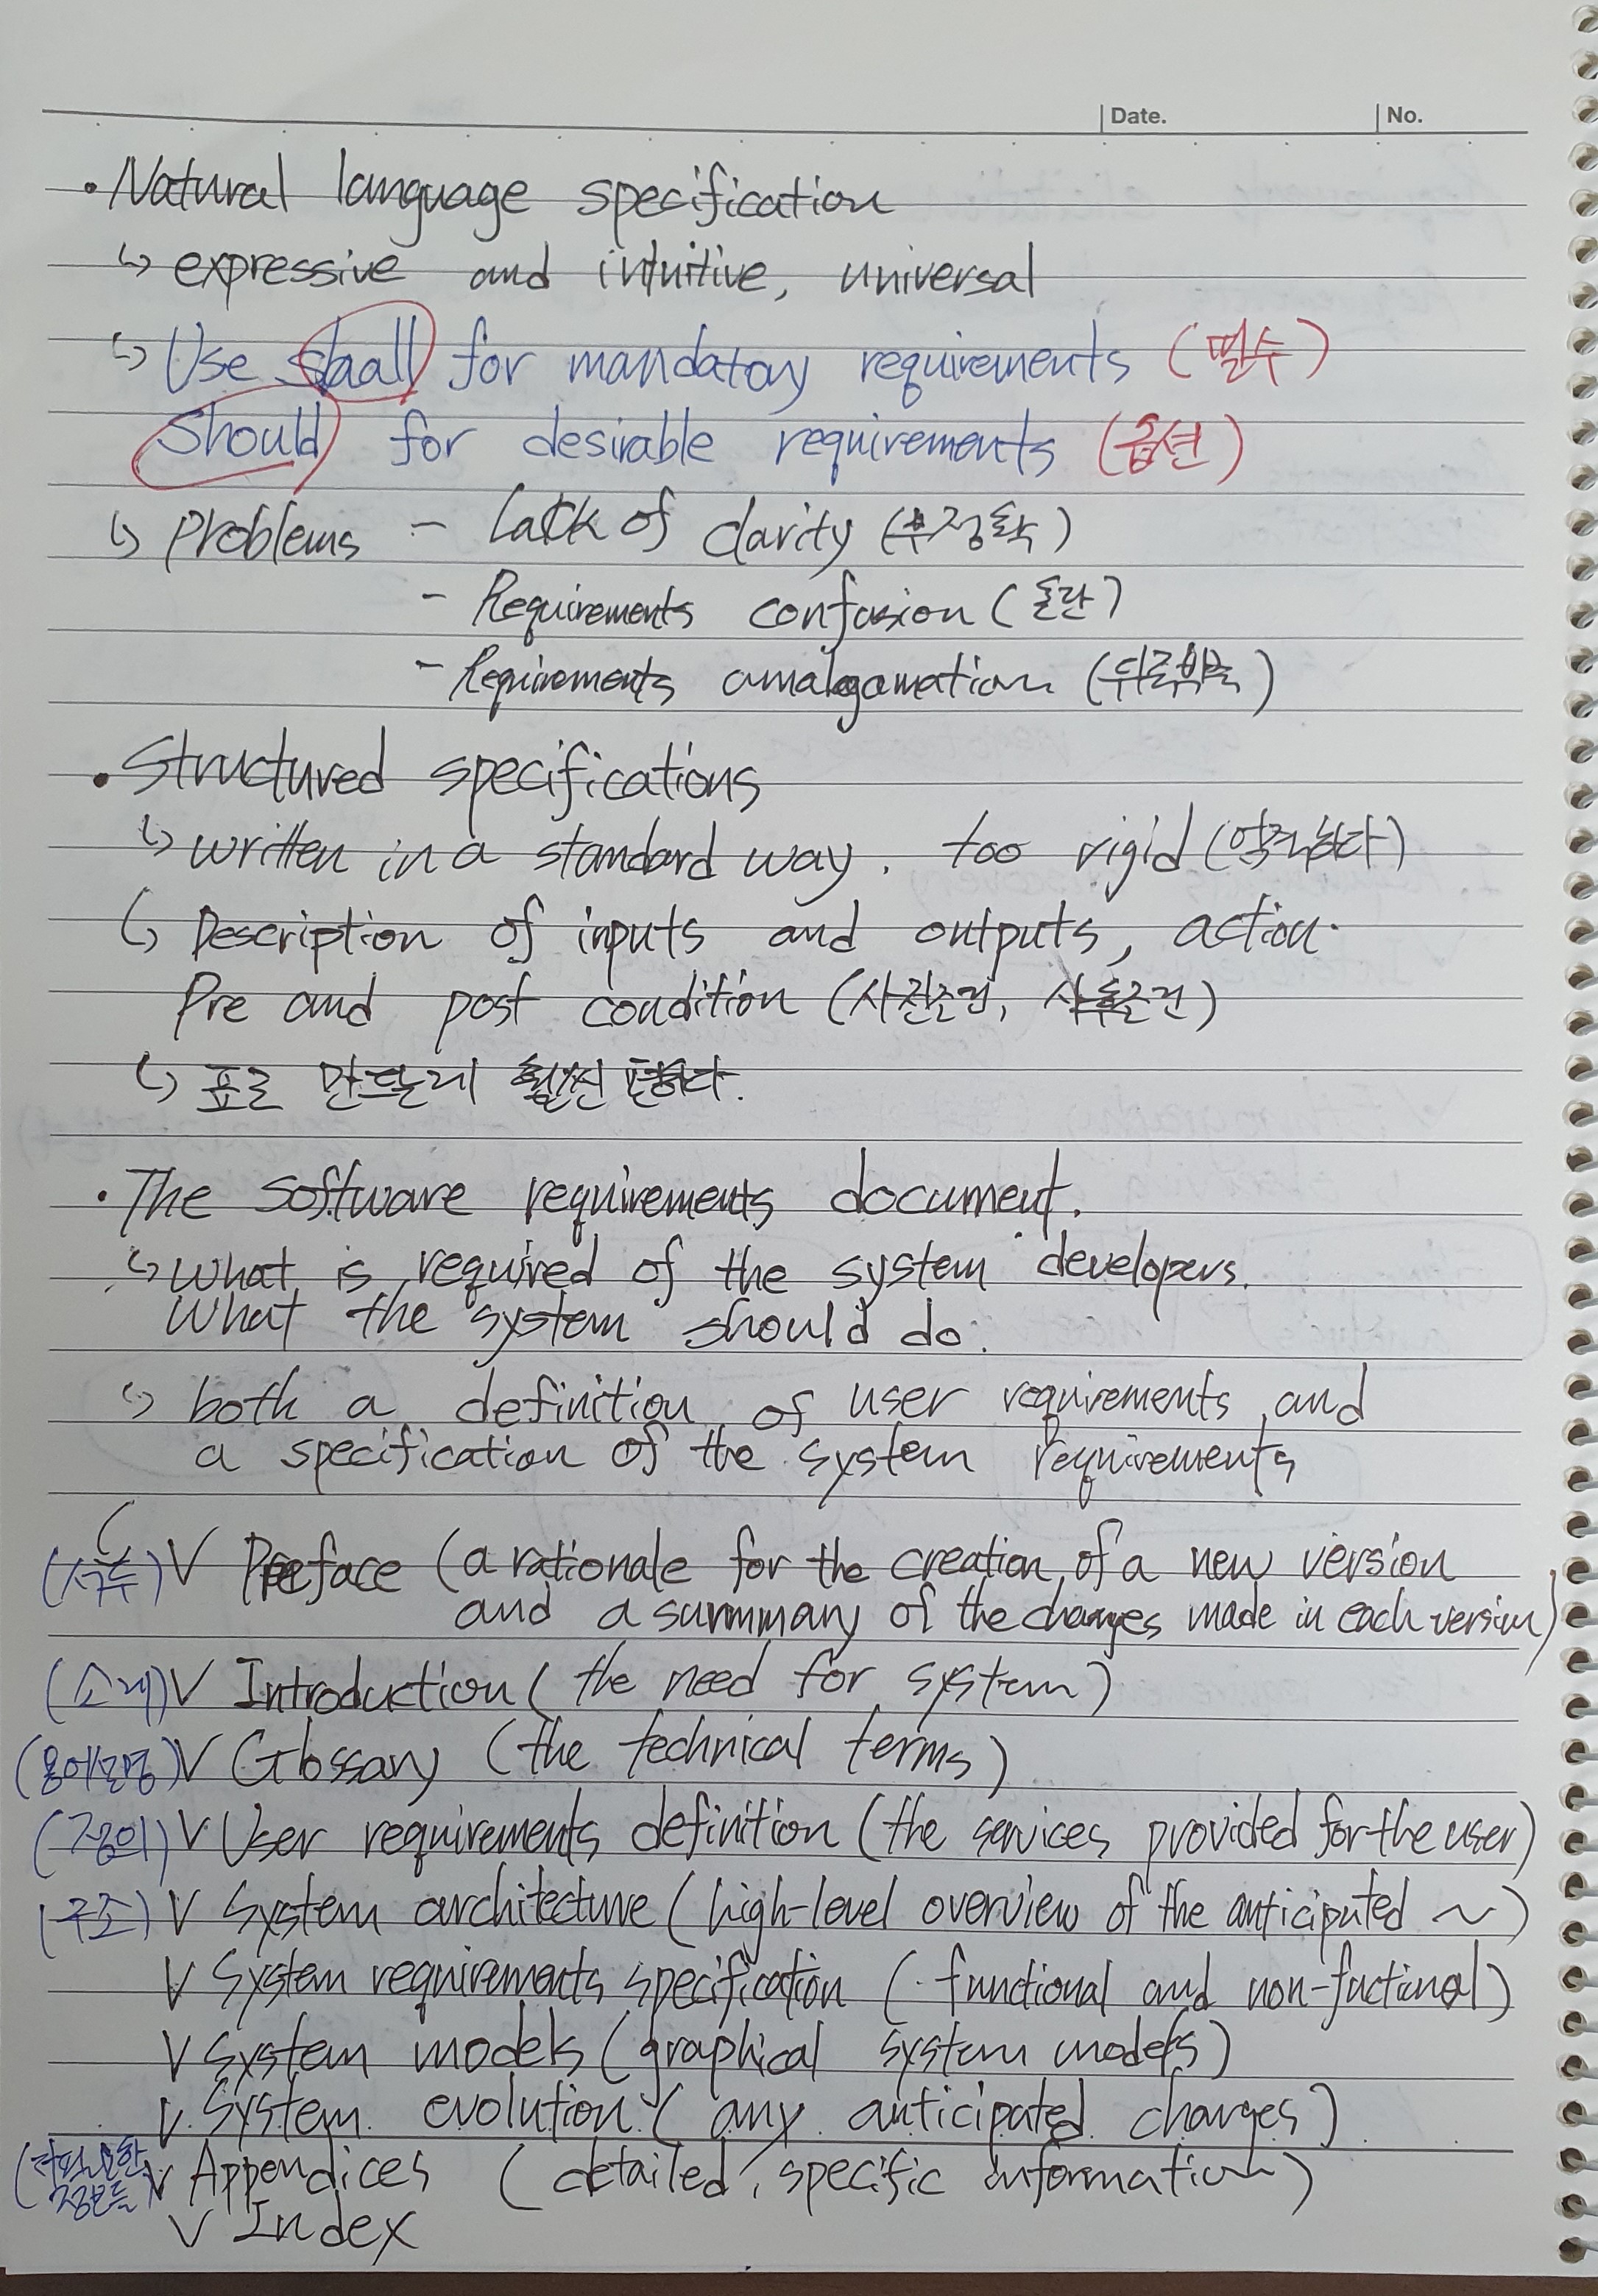 Date. No.
• Natural language specification
↳ expressive and intuitive, universal
↳ Use shall for mandatory requirements (필수)
Should for desirable requirements (옵션)
↳ problems - Lack of clarity (부정확)
- Requirements confusion (혼란)
- Requirements amalgamation (뒤죽박죽)
• Structured specifications
↳ written in a standard way. too rigid (엄격하다)
↳ Description of inputs and outputs, action.
Pre and post condition (사전조건, 사후조건)
↳ 표로 만드는게 훨씬 편하다.
• The software requirements document.
↳ What is required of the system developers.
What the system should do.
↳ both a definition of user requirements and
a specification of the system requirements
(서두) V Preface (a rationale for the creation of a new version
and a summary of the changes made in each version)
(소개) V Introduction (the need for system)
(용어설명) V Glossary (the technical terms)
(정의) V User requirements definition (the services provided for the user)
(구조) V System architecture (high-level overview of the anticipated ~)
V System requirements specification (functional and non-fuctional)
V System models (graphical system models)
V System evolution (any anticipated changes)
V Appendices (detailed, specific information)
정보들
V Index